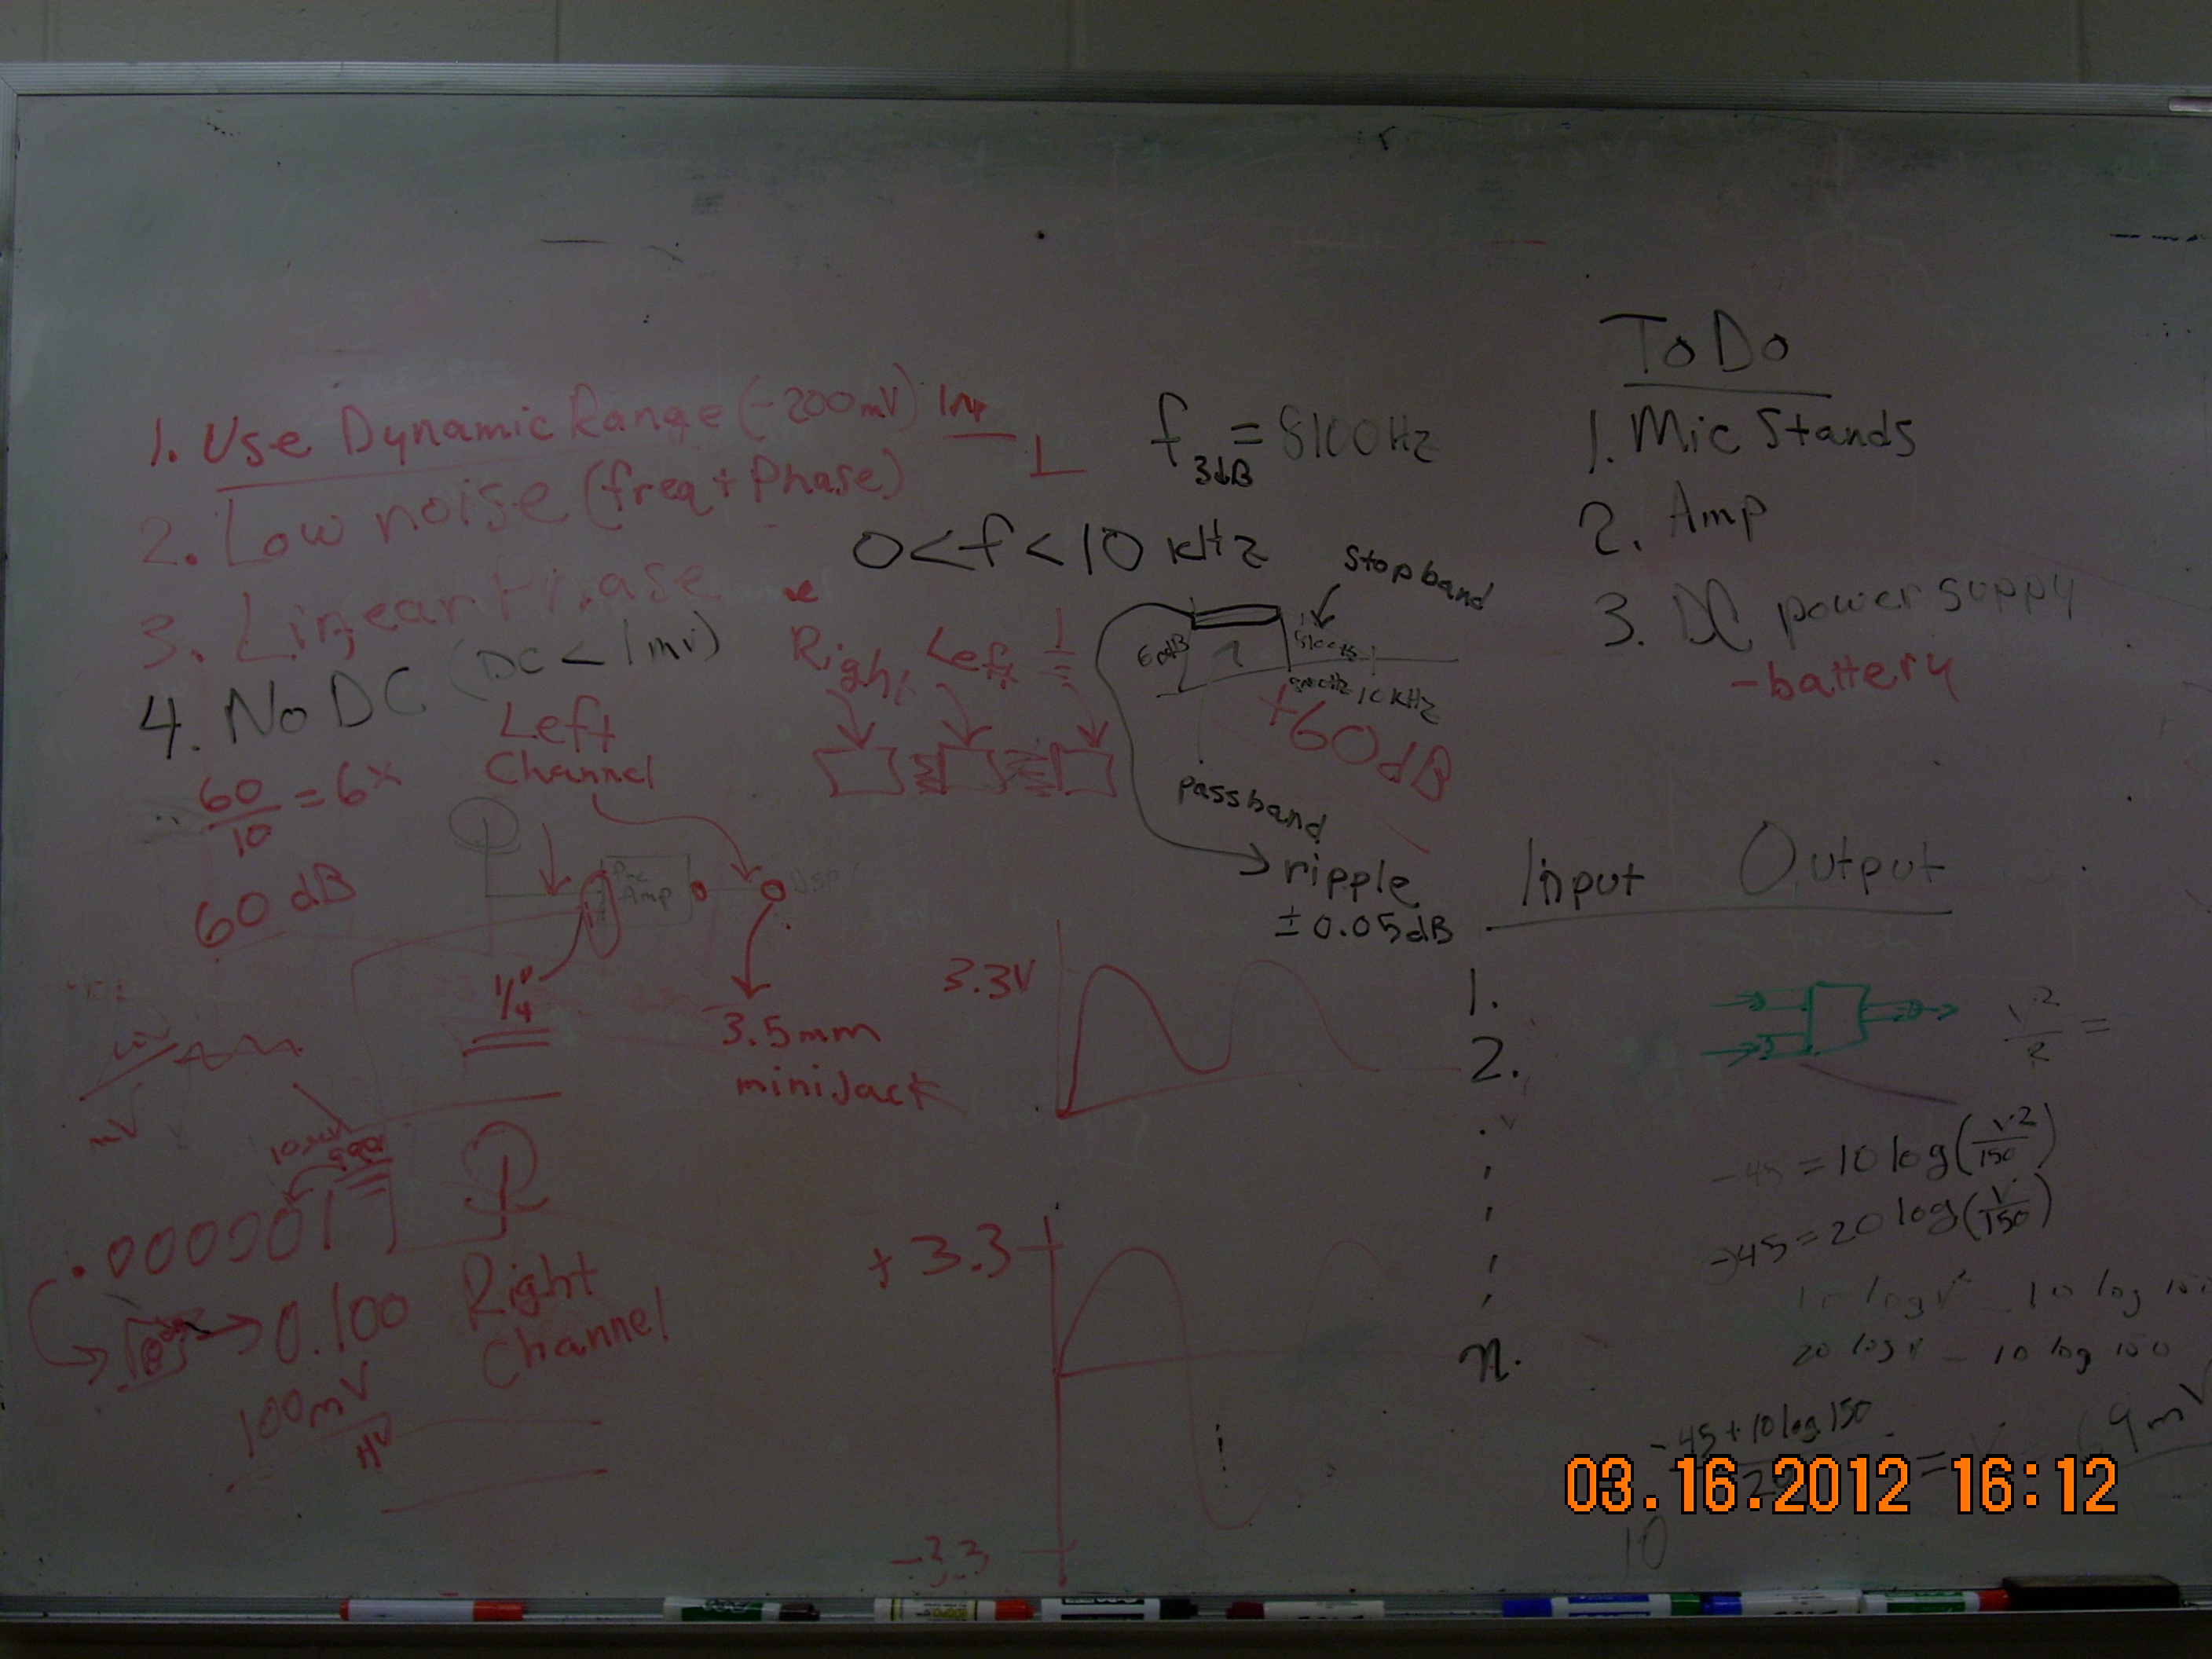 1. Use Dynamic Range (-200mV)
2. Low noise (freq + Phase)
3. Linear Phase
4. No DC (DC < 1mv)
60/10 = 6x
60 dB
Left
Channel
Pre
Amp
DSP
1/4"
3.5mm
miniJack
mV
.000001
0.100
100mV
Right
Channel
f3dB = 8100Hz
0 < f < 10 kHz
stopband
Right Left
60dB
10 kHz
+60dB
passband
ripple
± 0.05dB
3.3V
+ 3.3
-3.3
ToDo
1. Mic Stands
2. Amp
3. DC power supply
- battery
Input Output
1.
2.
n.
V²/2 =
-45 = 10 log(V²/150)
-45 = 20 log(V/150)
20 log V - 10 log 150
-45 + 10 log 150
10
03.16.2012 16:12